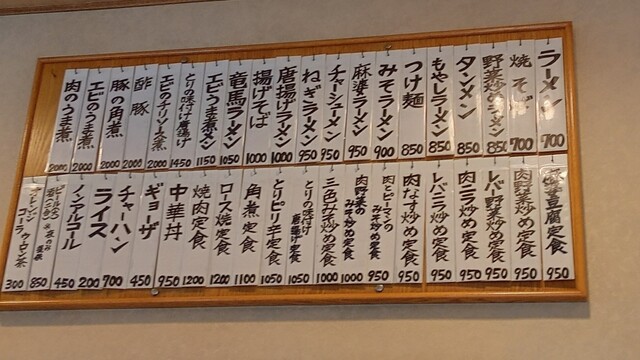 ラーメン 700
焼そば 700
野菜炒めラーメン 850
タンメン 850
もやしラーメン 850
つけ麺 850
みそラーメン 900
麻婆ラーメン 950
チャーシューメン 950
ねぎラーメン 950
唐揚げラーメン 1000
揚げそば 1000
竜馬ラーメン 1050
エビうま煮メン 1150
とりの味付け唐揚げ 1450
エビのチリソース煮 2000
酢豚 2000
豚の角煮 2000
エビのうま煮 2000
肉のうま煮 2000
麻婆豆腐定食 950
肉野菜炒め定食 950
レバ野菜炒め定食 950
肉ニラ炒め定食 950
レバニラ炒め定食 950
肉なす炒め定食 950
肉とピーマンのみそ炒め定食 950
肉野菜のみそ炒め定食 1000
三色炒め定食 1000
とりの味付け唐揚げ定食 1050
とりピリ辛定食 1050
角煮定食 1100
ロース焼定食 1200
焼肉定食 1200
中華丼 950
ギョーザ 450
チャーハン 700
ライス 200
ノンアルコール 450
850
コーラ 300